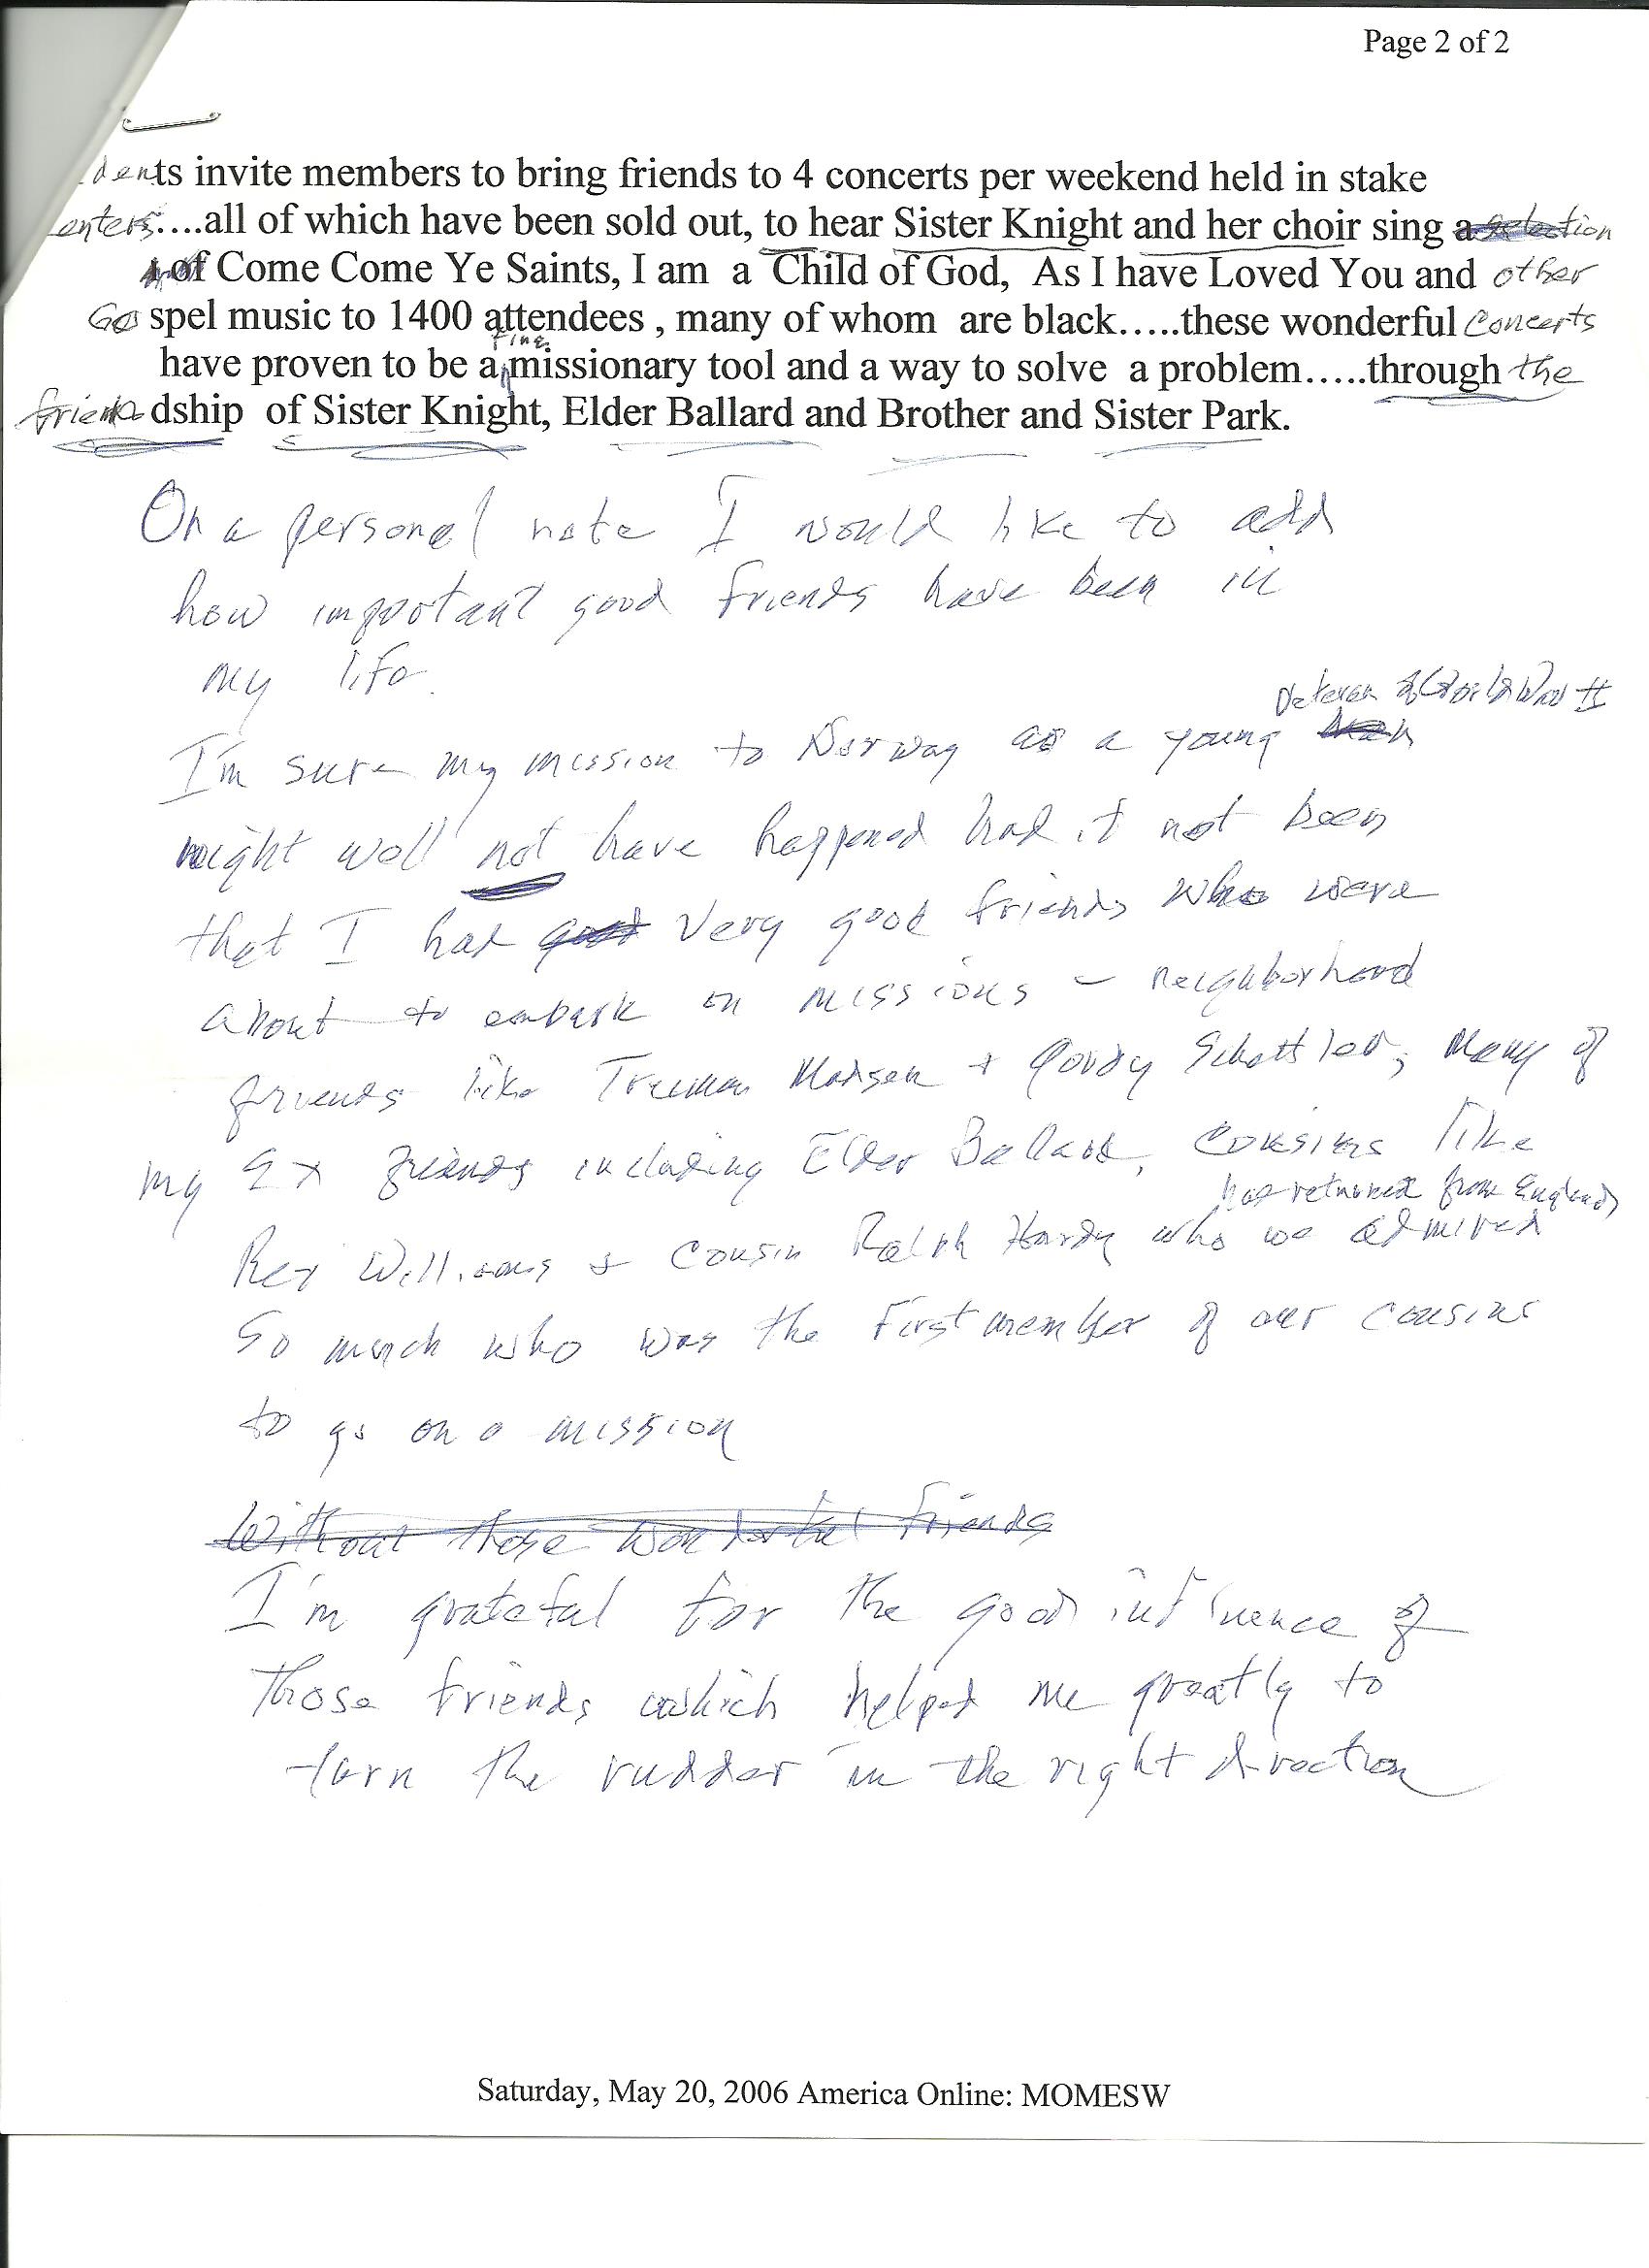 Page 2 of 2
dents invite members to bring friends to 4 concerts per weekend held in stake
enters....all of which have been sold out, to hear Sister Knight and her choir sing a selection
of Come Come Ye Saints, I am a Child of God, As I have Loved You and other
Gospel music to 1400 attendees , many of whom are black.....these wonderful concerts
fine
have proven to be a missionary tool and a way to solve a problem.....through the
friendship of Sister Knight, Elder Ballard and Brother and Sister Park.
On a personal note I would like to add
how important good friends have been in
my life.
Veteran of World War II
I'm sure my mission to Norway as a young man
might well not have happened had it not been
that I had good very good friends who were
about to embark on missions - neighborhood
friends like Truman Madsen + Gordy ; Many of
my Σ X friends including Elder Ballard, cousins like
had returned from England
Rex Williams & Cousin Ralph Hardy who we admired
So much who was the First member of our cousins
to go on a mission
Without these wonderful friends
I'm grateful for the good influence of
those friends which helped me greatly to
turn the rudder in the right direction
Saturday, May 20, 2006 America Online: MOMESW